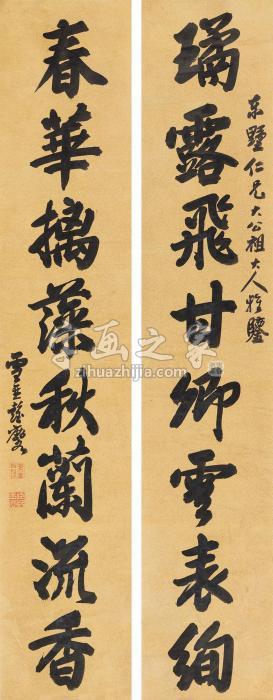 東墅仁兄大公祖大人雅鑒
璚露飛甘卿雲表絢
春華摛藻秋蘭流香
字画之家
zihuazhijia.com